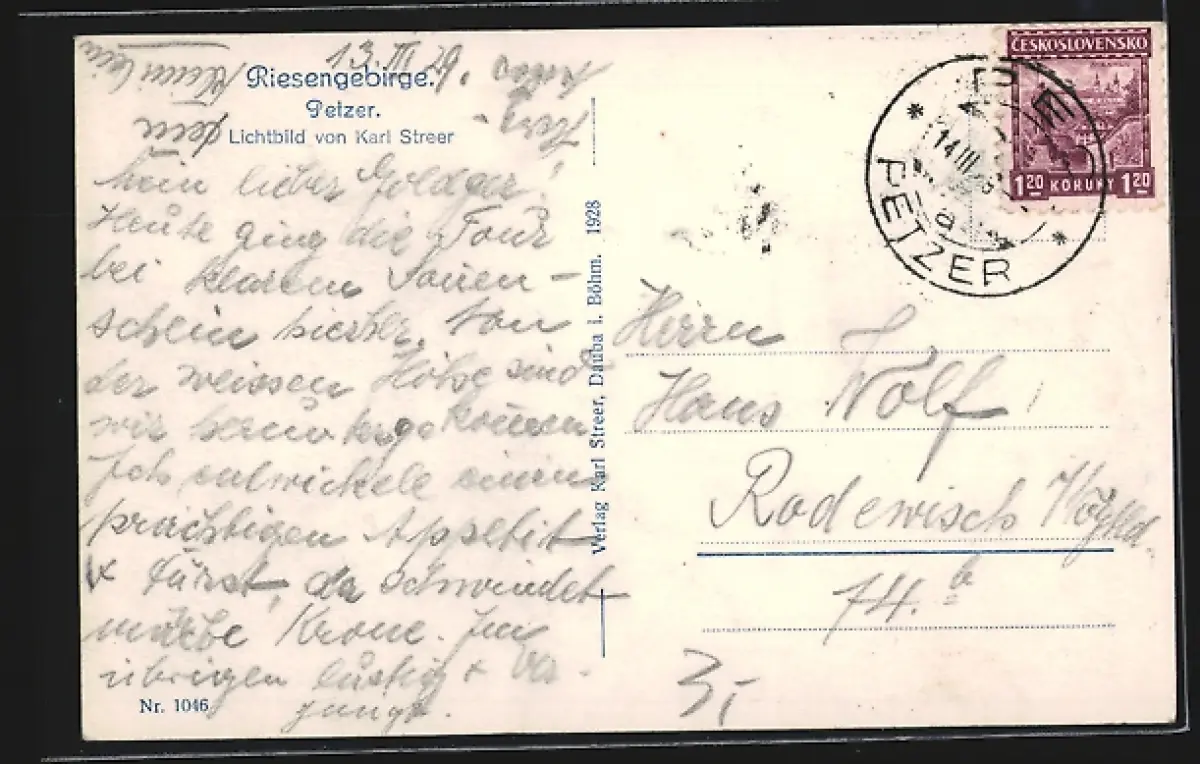 13. III 29.
Riesengebirge.
Petzer.
Lichtbild von Karl Streer
Mein lieber Goldger!
Heute ging die Tour
bei klarem Sonnen-
schein weiter. Von
der weissen Wiese sind
wir heruntergekommen
Ich entwickele einen
prächtigen Appetit
& Durst, da schwindet
manche Krone. Im
übrigen lustig &
junge.
Nr. 1046
Verlag Karl Streer, Dauba i. Böhm. 1928
ČESKOSLOVENSKO
1 20 KORUNY 1 20
PEC
14 III
a
PETZER
Herrn
Hans Wolf
Rodewisch Vogtld.
74. b
3,-